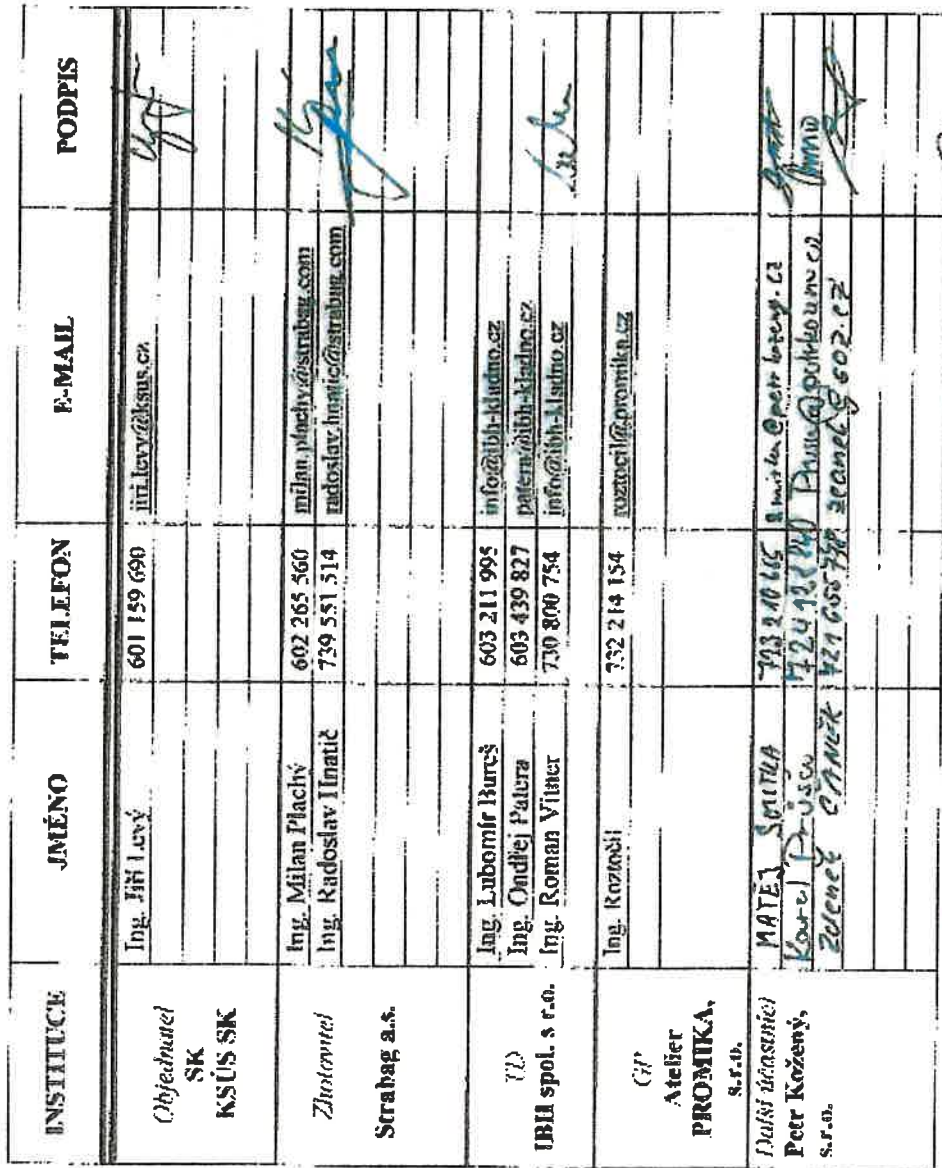 INSTITUCE JMÉNO TELEFON E-MAIL PODPIS
Objednatel
SK
KSÚS SK
Ing. Jiří Levý 601 159 690 jiri.levy@ksus.cz
Zhotovitel
Strabag a.s.
Ing. Milan Plachý 602 265 560 milan.plachy@strabag.com
Ing. Radoslav Hnatič 739 551 514 radoslav.hnatic@strabag.com
TD
IBH spol. s r.o.
Ing. Lubomír Bureš 603 211 995 info@ibh-kladno.cz
Ing. Ondřej Patera 603 439 827 patera@ibh-kladno.cz
Ing. Roman Vitner 730 800 754 info@ibh-kladno.cz
GP
Atelier
PROMIKA,
s.r.o.
Ing. Roztočil 732 214 154 roztocil@promika.cz
Další účastníci
Petr Kožený,
s.r.o.
MATĚJ SMITKA
Karel Průša
Zdeněk